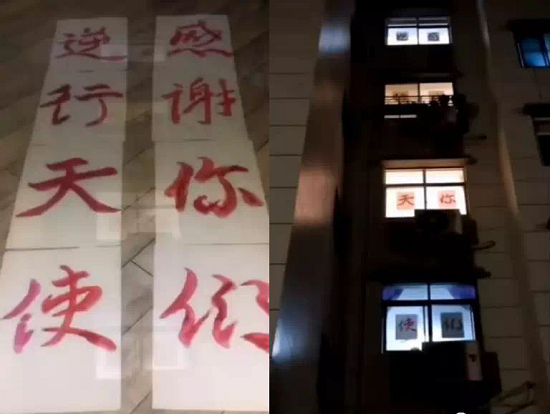 感谢你们
逆行天使
你们
天使